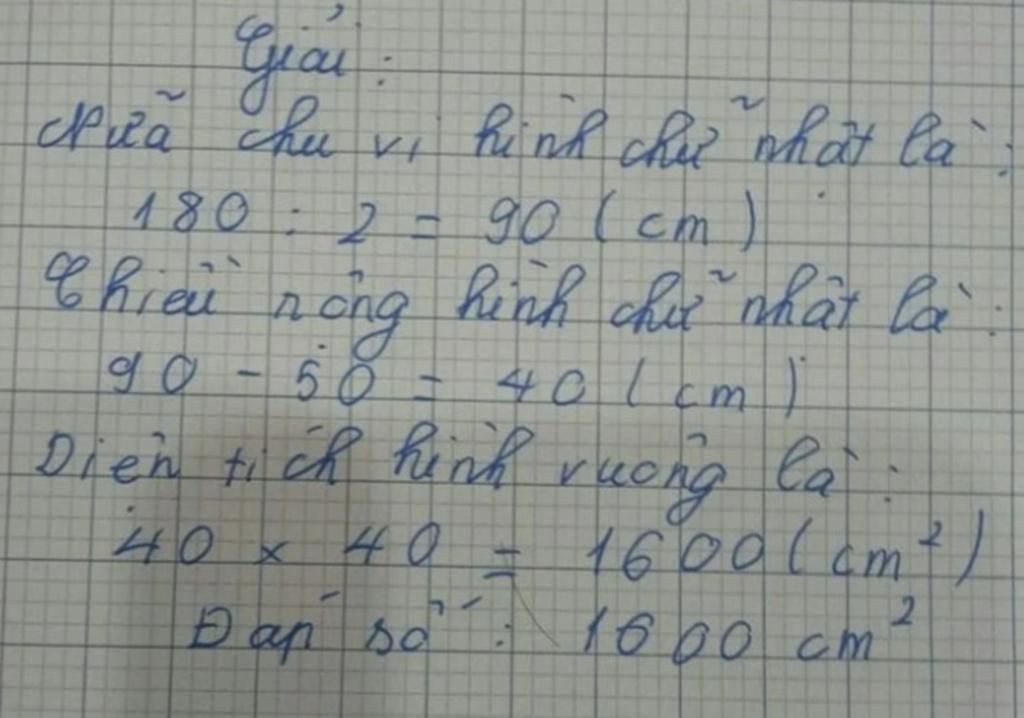 Giải:
Nửa chu vi hình chữ nhật là:
180 : 2 = 90 (cm)
Chiều rộng hình chữ nhật là:
90 - 50 = 40 (cm)
Diện tích hình vuông là:
40 x 40 = 1600 (cm²)
Đáp số: 1600 cm²